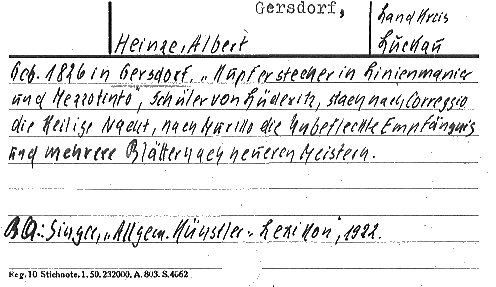 Gersdorf,
Landkreis
Luckau
Heinze, Albert
Geb. 1826 in Gersdorf. „Kupferstecher in Linienmanier
und Mezzotinto", Schüler von Lüderitz, stach nach Correggio
die Heilige Nacht, nach Murillo die Unbefleckte Empfängnis
und mehrere Blätter nach neueren Meistern.
BQ.: Singer, „Allgem. Künstler-Lexikon", 1922.
Reg. 10 Stichnote. 1. 50. 232000. A. 803. S. 4662